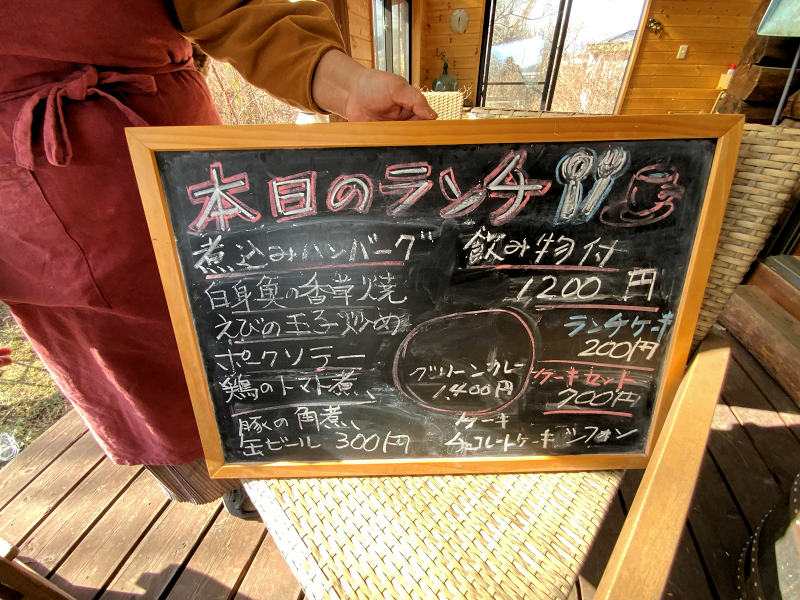 本日のランチ
煮込みハンバーグ
白身魚の香草焼
えびの玉子炒め
ポークソテー
鶏のトマト煮
豚の角煮
缶ビール 300円
飲み物付
1200円
ランチケーキ
200円
グリーンカレー
1,400円
ケーキセット
700円
ケーキ
チョコレートケーキ シフォン